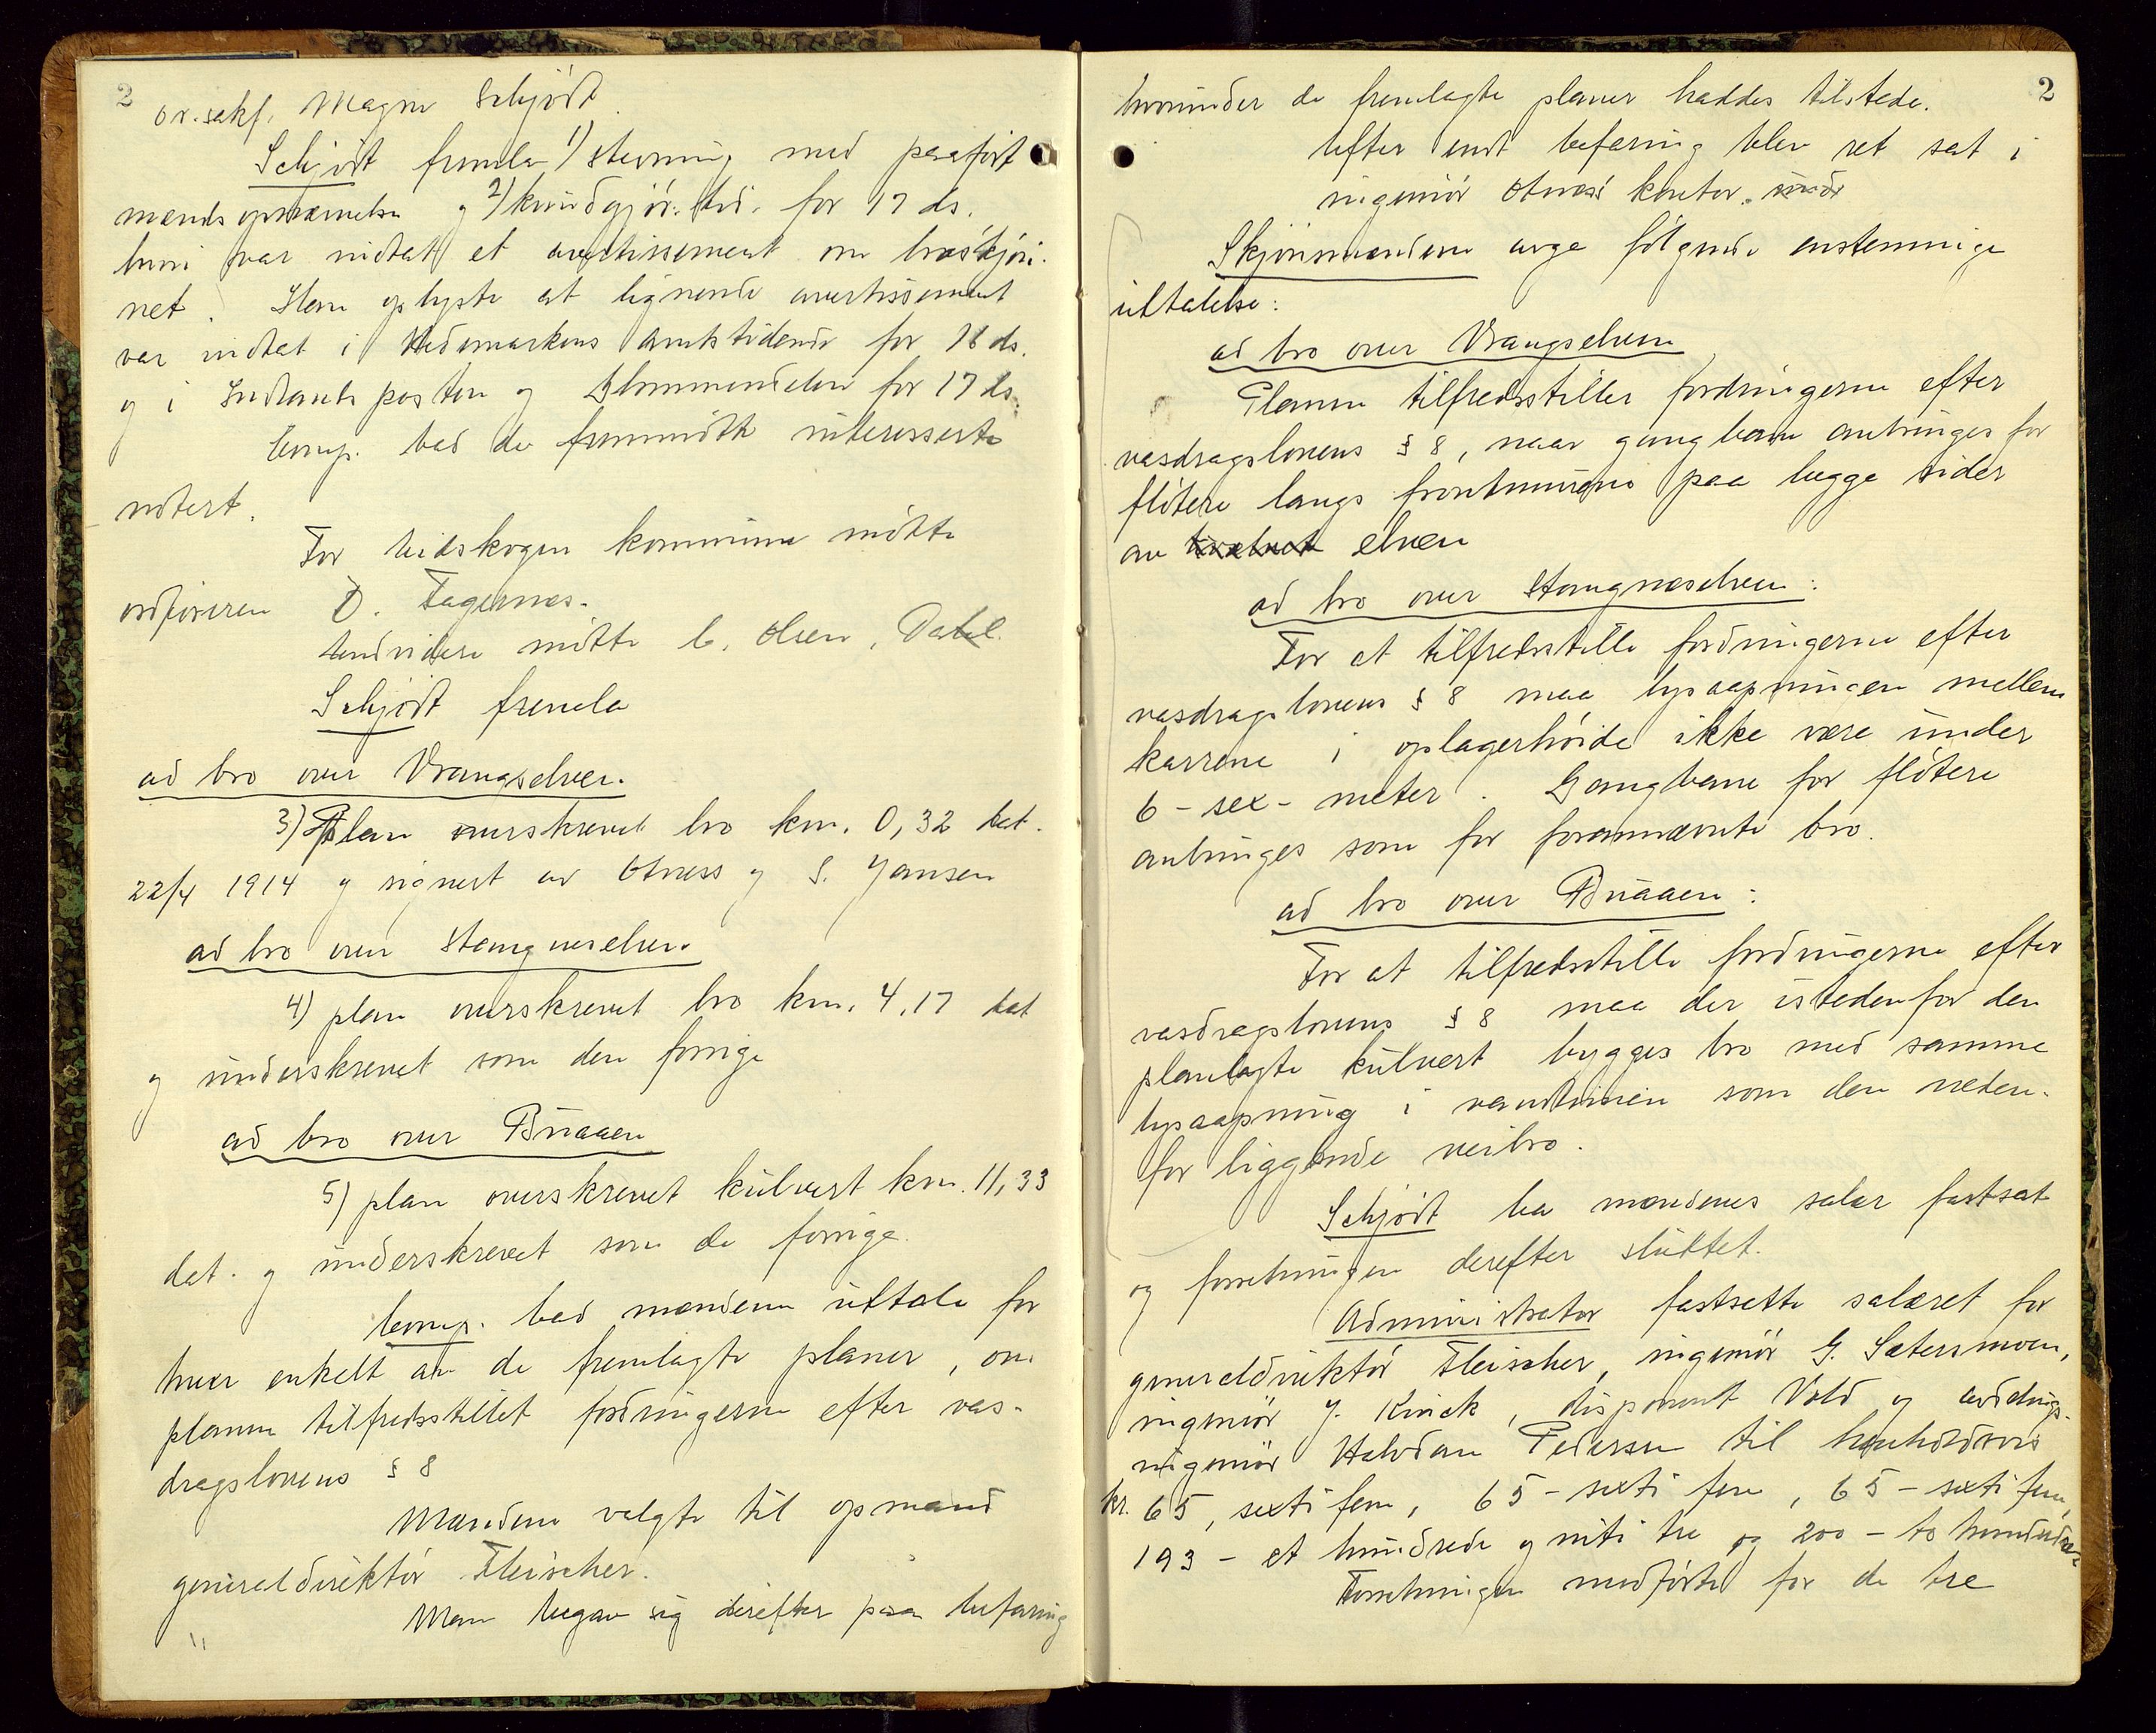 2
or. sakf. Magne Schjödt.
Schjödt fremla 1) stevning med paaført
mændsopnævnelse og 2) kundgjör. tid. for 17 ds.
hvori var indtat et avertissement om broskjön-
net. Han oplyste at lignende avertissement
var indtat i Hedemarkens Amtstidende for 18 ds.
og i Indlandsposten og Glommendalen for 17 ds.
Comp. bad de fremmötte interesserte
notert.
For Eidskogen kommune mötte
ordföreren O. Fagernæs.
Endvidere mötte C. Olsen, Dahl.
Schjödt fremla
ad bro over Vrangselven.
3) Plan overskrevet bro km. 0,32 dat.
22/4 1914 og signert av Otness og S. Jansen
ad bro over Stangneselven.
4) plan overskrevet bro km. 4,17 dat
og underskrevet som den forrige
ad bro over Buaaen
5) plan overskrevet kulvert km. 11,33
dat. og underskrevet som de forrige.
Comp. bad mændene uttale for
hver enkelt av de fremlagte planer, om
planen tilfredsstillet fordringerne efter vas-
dragslovens § 8
Mændene valgte til opmand
generaldirektör Fleischer.
Man begav sig derefter paa befaring
2
hvorunder de fremlagte planer haddes tilstede.
Efter endt befaring blev ret sat i
ingeniör Otness' kontor.
Skjönsmændene avga fölgende enstemmige
uttalelse:
ad bro over Vrangselven
Planen tilfredsstiller fordringerne efter
vasdragslovens § 8, naar gangbane anbringes for
flötere langs frontmurene paa begge sider
av elven
ad bro over Stangneselven:
For at tilfredsstille fordringerne efter
vasdragslovens § 8 maa lysaapningen mellem
karrene i oplagerhöide ikke være under
6 - sex - meter. Gangbane for flötere
anbringes som for forannævnte bro.
ad bro over Buaaen:
For at tilfredsstille fordringerne efter
vasdragslovens § 8 maa der istedenfor den
planlagte kulvert bygges bro med samme
lysaapning i vandlinien som den neden-
for liggende veibro.
Schjödt ba mændenes salær fastsat
og forretningen derefter sluttet.
Administrator fastsatte salæret for
generaldirektör Fleischer, ingeniör G. Sætersmoen,
ingeniör J. Kinck, disponent Vold og avdelings-
ingeniör Halvdan Pedersen til henholdsvis
kr. 65, sexti fem, 65 - sexti fem, 65 - sexti fem,
193 - et hundrede og niti tre og 200 - to hundrede
Forretningen medförte for de tre